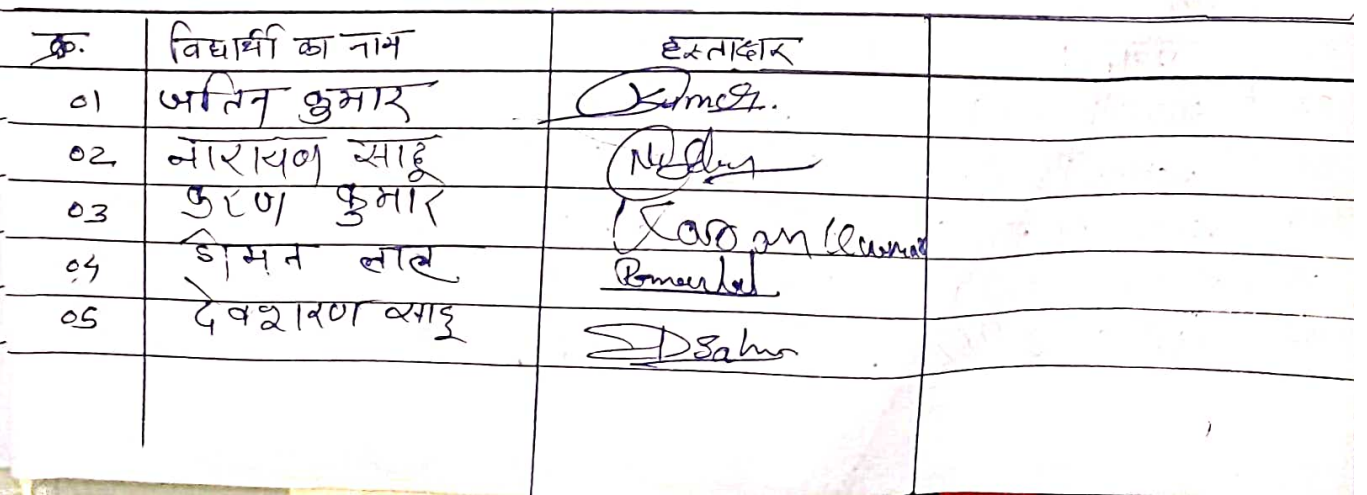 क्र. विद्यार्थी का नाम हस्ताक्षर
01 जतिन कुमार
02 नारायण साहू
03 करण कुमार Karan Kumar
04 लाल
05 देवशरण साहू D Sahu